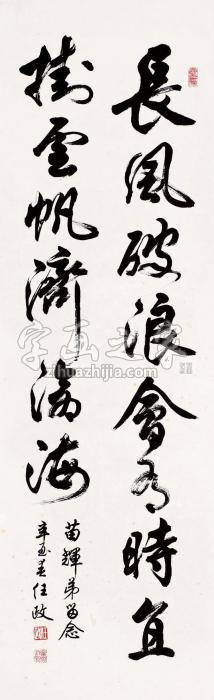 長風破浪會有時直
掛雲帆濟滄海
苗輝弟留念
辛酉春任政
字画之家
zihuazhijia.com